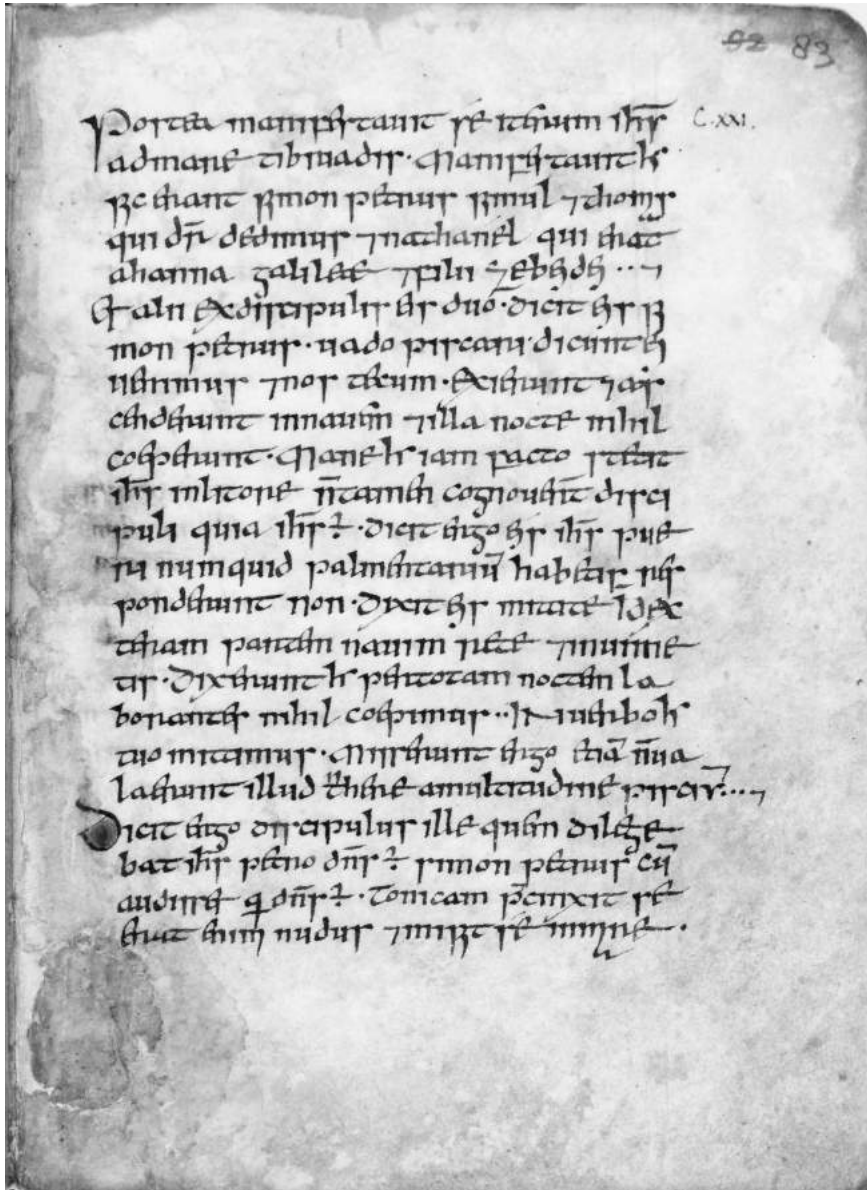 82 83
Postea manifestauit se iterum ihs̄ C·xxi·
admare tibiriadis· Manifestauit h̄
sic erant simon petrus simul ⁊ thomas
qui dr̄ dedimus ⁊ nathanel qui erat
ahanna galilee ⁊ filii zebedei ··⁊
Et alii exdiscipulis eis duo· dicit eis si
mon petrus· uado piscari· dicunt ei
uenimus ⁊ nos tecum· Exierunt ⁊ as
cenderunt innauem ⁊ illa nocte nihil
coeperunt· Mane h̄ iam facto stetit
ihs̄ inlitore n̄ tamen cognouer̄t disci
puli quia ihs̄ ÷· dicit ergo eis ihs̄ pue
ri numquid palmentariū habetis res
ponderunt non· dixit eis mitite ī dex
teram partem nauim rete ⁊ inuine
tis· dixerunt h̄ per totam noctem la
borantes nihil coepimus·· In uerbo h̄
tuo mitimus· Misserunt ergo etiā n̄ ua
lebunt illud trhere a multitudine piscis̄···⁊
Dicit ergo discipulus ille quem dilege
bat ihs̄ petro dn̄s ÷ simon petrus cū
audisset q̄ dn̄s ÷· Tonicam p̄cinxit se
erat enim nudus ⁊ missit se inmare·